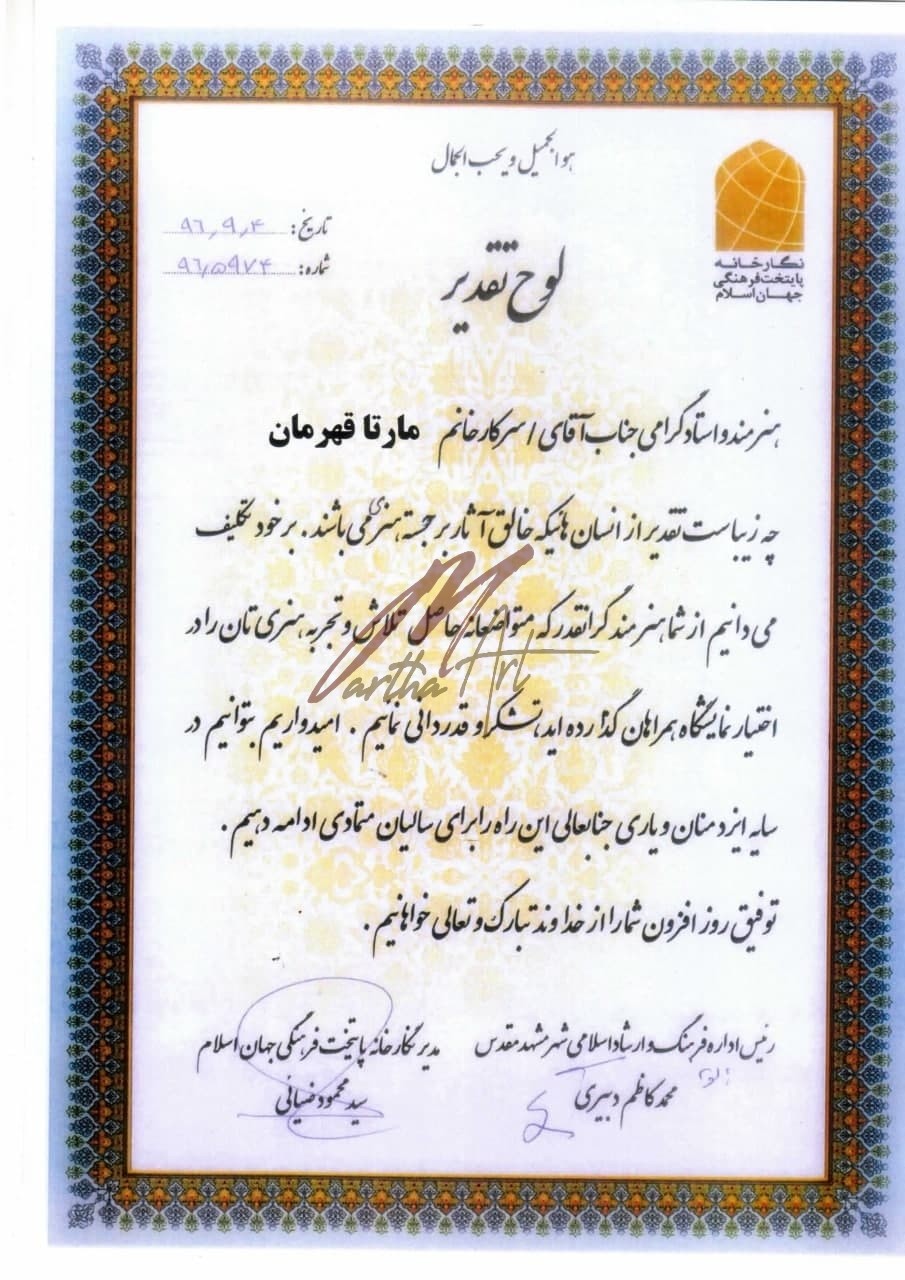 هوالجمیل و یحب الجمال
نگارخانه
پایتخت فرهنگی
جهان اسلام
تاریخ: ۹۶,۹,۴
شماره: ۹۶٫۵۹۷۴
لوح تقدیر
هنرمند و استاد گرامی جناب آقای / سرکار خانم مارتا قهرمان
چه زیباست تقدیر از انسان هائیکه خالق آثار برجسته هنری می باشند. بر خود تکلیف
می دانیم از شما هنرمند گرانقدر که متواضعانه حاصل تلاش و تجربه هنری تان را در
اختیار نمایشگاه همراهان گذارده اید، تشکر و قدردانی نماییم. امیدواریم بتوانیم در
سایه ایزد منان و یاری جنابعالی این راه را برای سالیان متمادی ادامه دهیم.
توفیق روز افزون شما را از خداوند تبارک و تعالی خواهانیم.
Martha Art
رئیس اداره فرهنگ و ارشاد اسلامی شهر مشهد مقدس
محمد کاظم دبیری
مدیر نگارخانه پایتخت فرهنگی جهان اسلام
سید محمود ضیائی